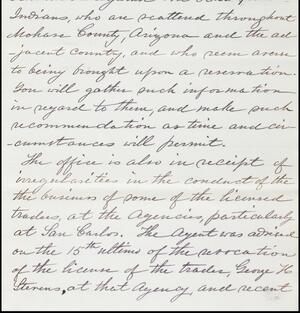 Indians, who are scattered throughout
Mohave County, Arizona and the ad-
jacent country, and who seem averse
to being brought upon a reservation.
You will gather such information
in regard to them and make such
recommendation as time and cir-
cumstances will permit.
The office is also in receipt of
irregularities in the conduct of the
the business of some of the licensed
traders, at the Agencies, particularly
at San Carlos. The Agent was advised
on the 15th ultimo of the revocation
of the license of the trader, George H.
Stevens, at that Agency, and recent